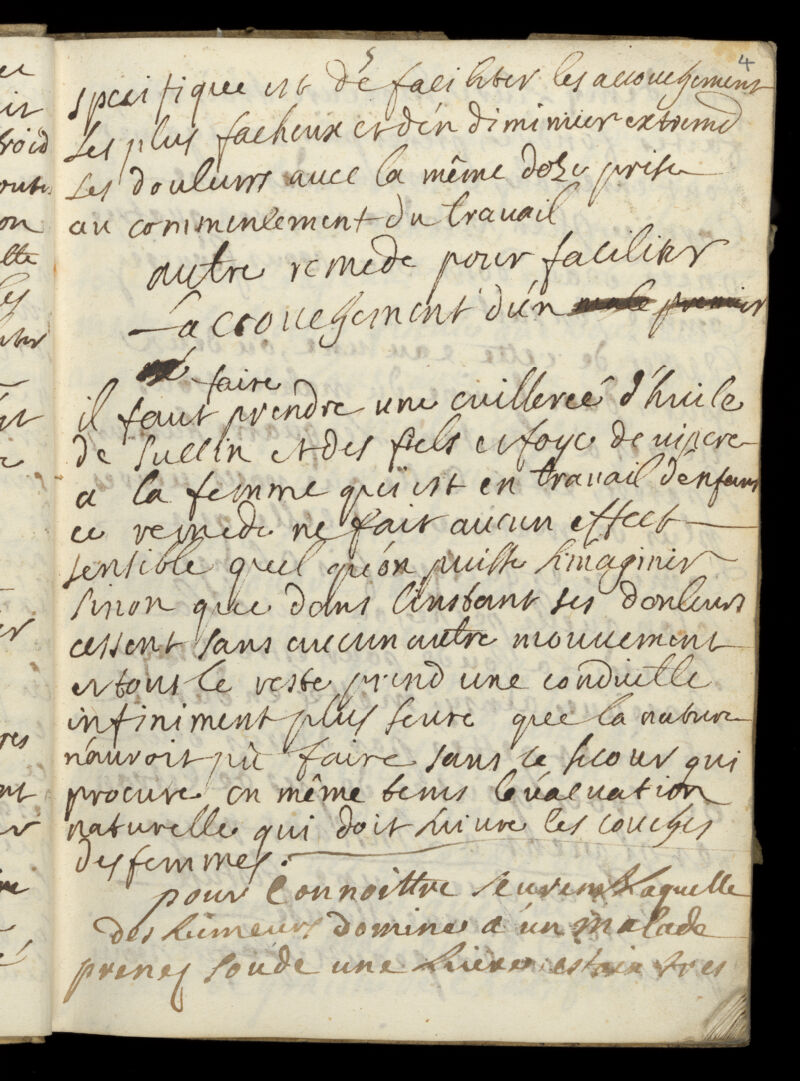 4
specifique est dé faciliter les accouchement
les plus facheux et dén diminuer extremd
les douleurs avec la même doze prise
au commencement du travail
autre remede pour faciliter
Laccouchement dún male premier
né faire
il faut prendre une cuillereé d'huile
de succin et des fiels et foye de vipere
a la femme quï est en travail dénfans
ce remede ne fait aucun effect
sensible quel quón puisse simaginer
sinon que dans l'instant ses douleurs
cessent sans aucun autre mouvement
et tous le reste prend une conduitte
infiniment plus seure que la nature
náuroit pù faire sans ce secour qui
procure en même tems lévacuation
naturelle qui doit suivre les couches
des femmes.
pour Connoittre seurem laquelle
des humeurs domine a un malade
prenez soude une tres